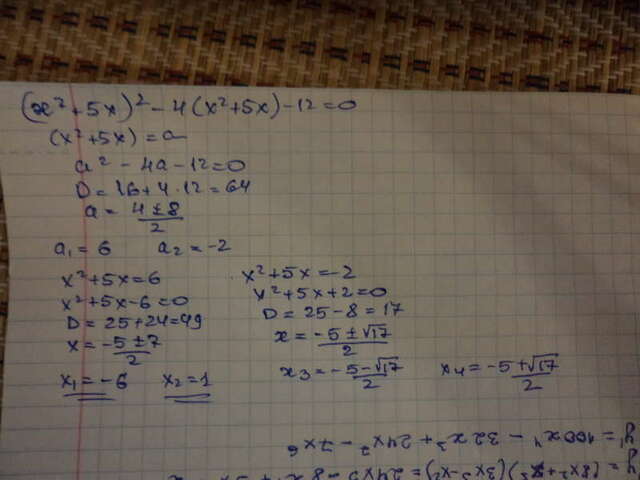 (x²+5x)²-4(x²+5x)-12=0
(x²+5x)=a
a²-4a-12=0
D=16+4·12=64
a=(4±8)/2
a₁=6 a₂=-2
x²+5x=6
x²+5x-6=0
D=25+24=49
x=(-5±7)/2
x₁=-6 x₂=1
x²+5x=-2
x²+5x+2=0
D=25-8=17
x=(-5±√17)/2
x₃=(-5-√17)/2 x₄=(-5+√17)/2